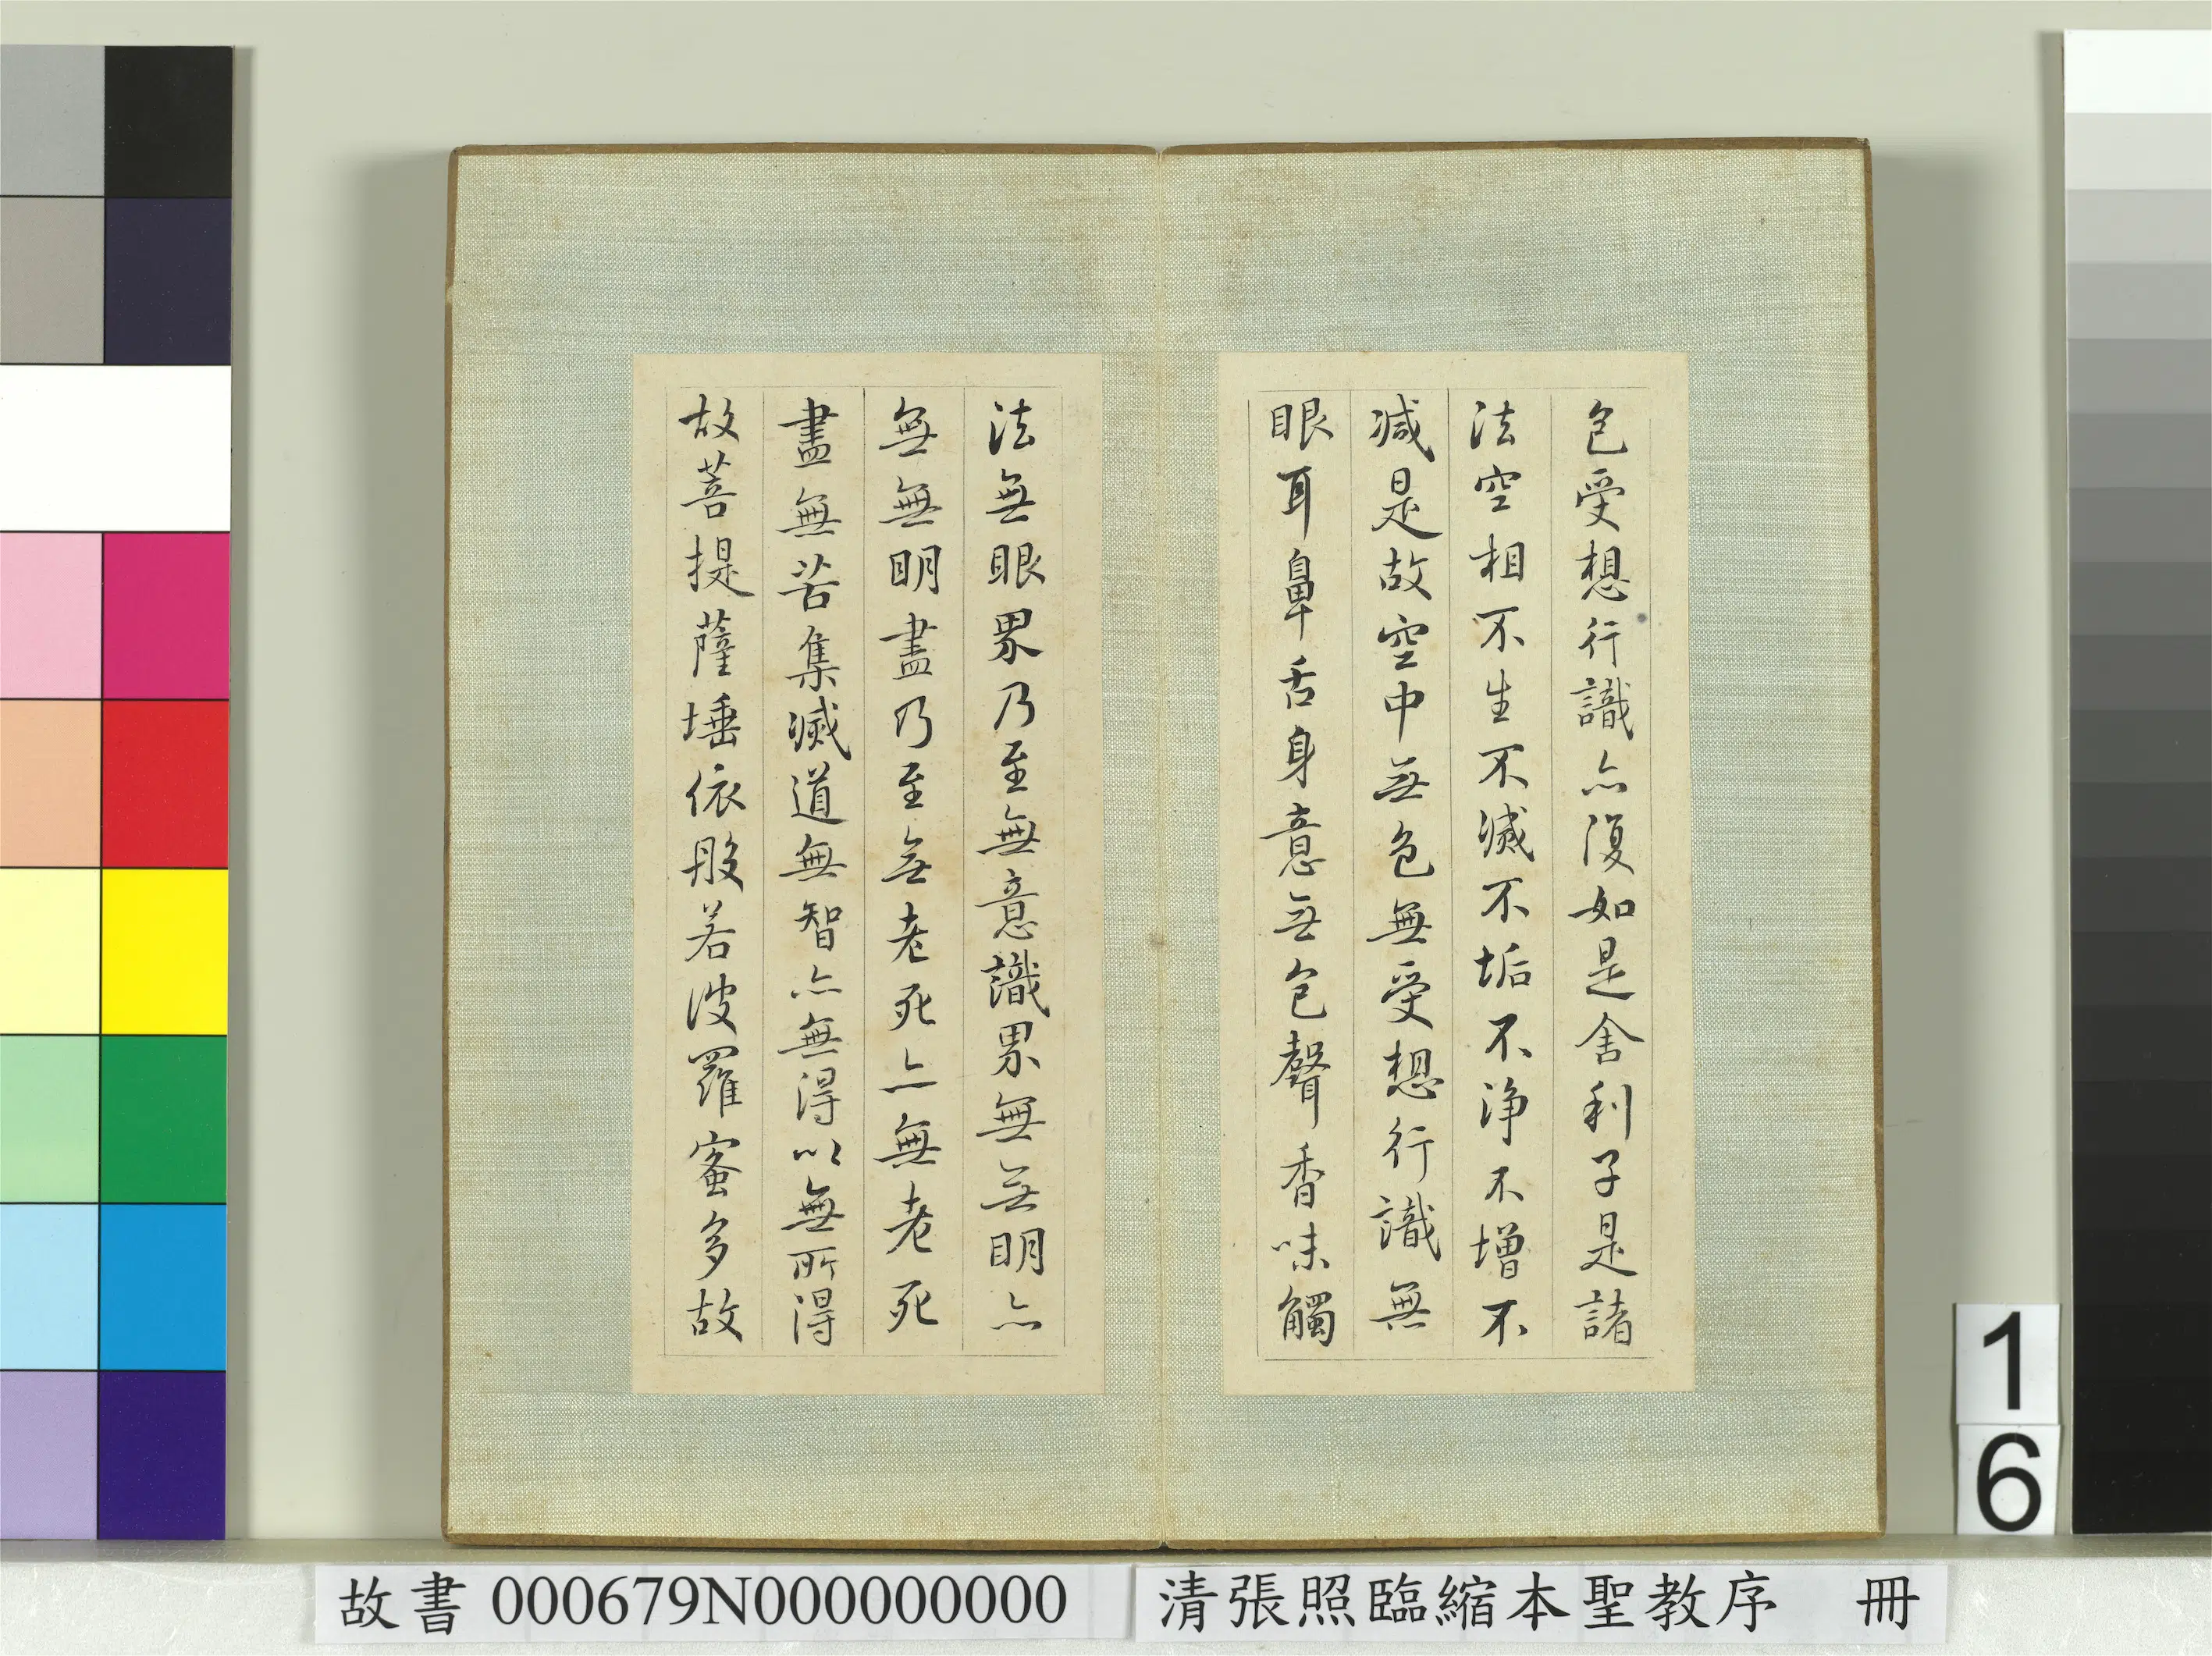 色受想行識亦復如是舍利子是諸
法空相不生不滅不垢不淨不增不
減是故空中無色無受想行識無
眼耳鼻舌身意無色聲香味觸
法無眼界乃至無意識界無無明亦
無無明盡乃至無老死亦無老死
盡無苦集滅道無智亦無得以無所得
故菩提薩埵依般若波羅蜜多故
1
6
故書 000679N000000000
清張照臨縮本聖教序 冊